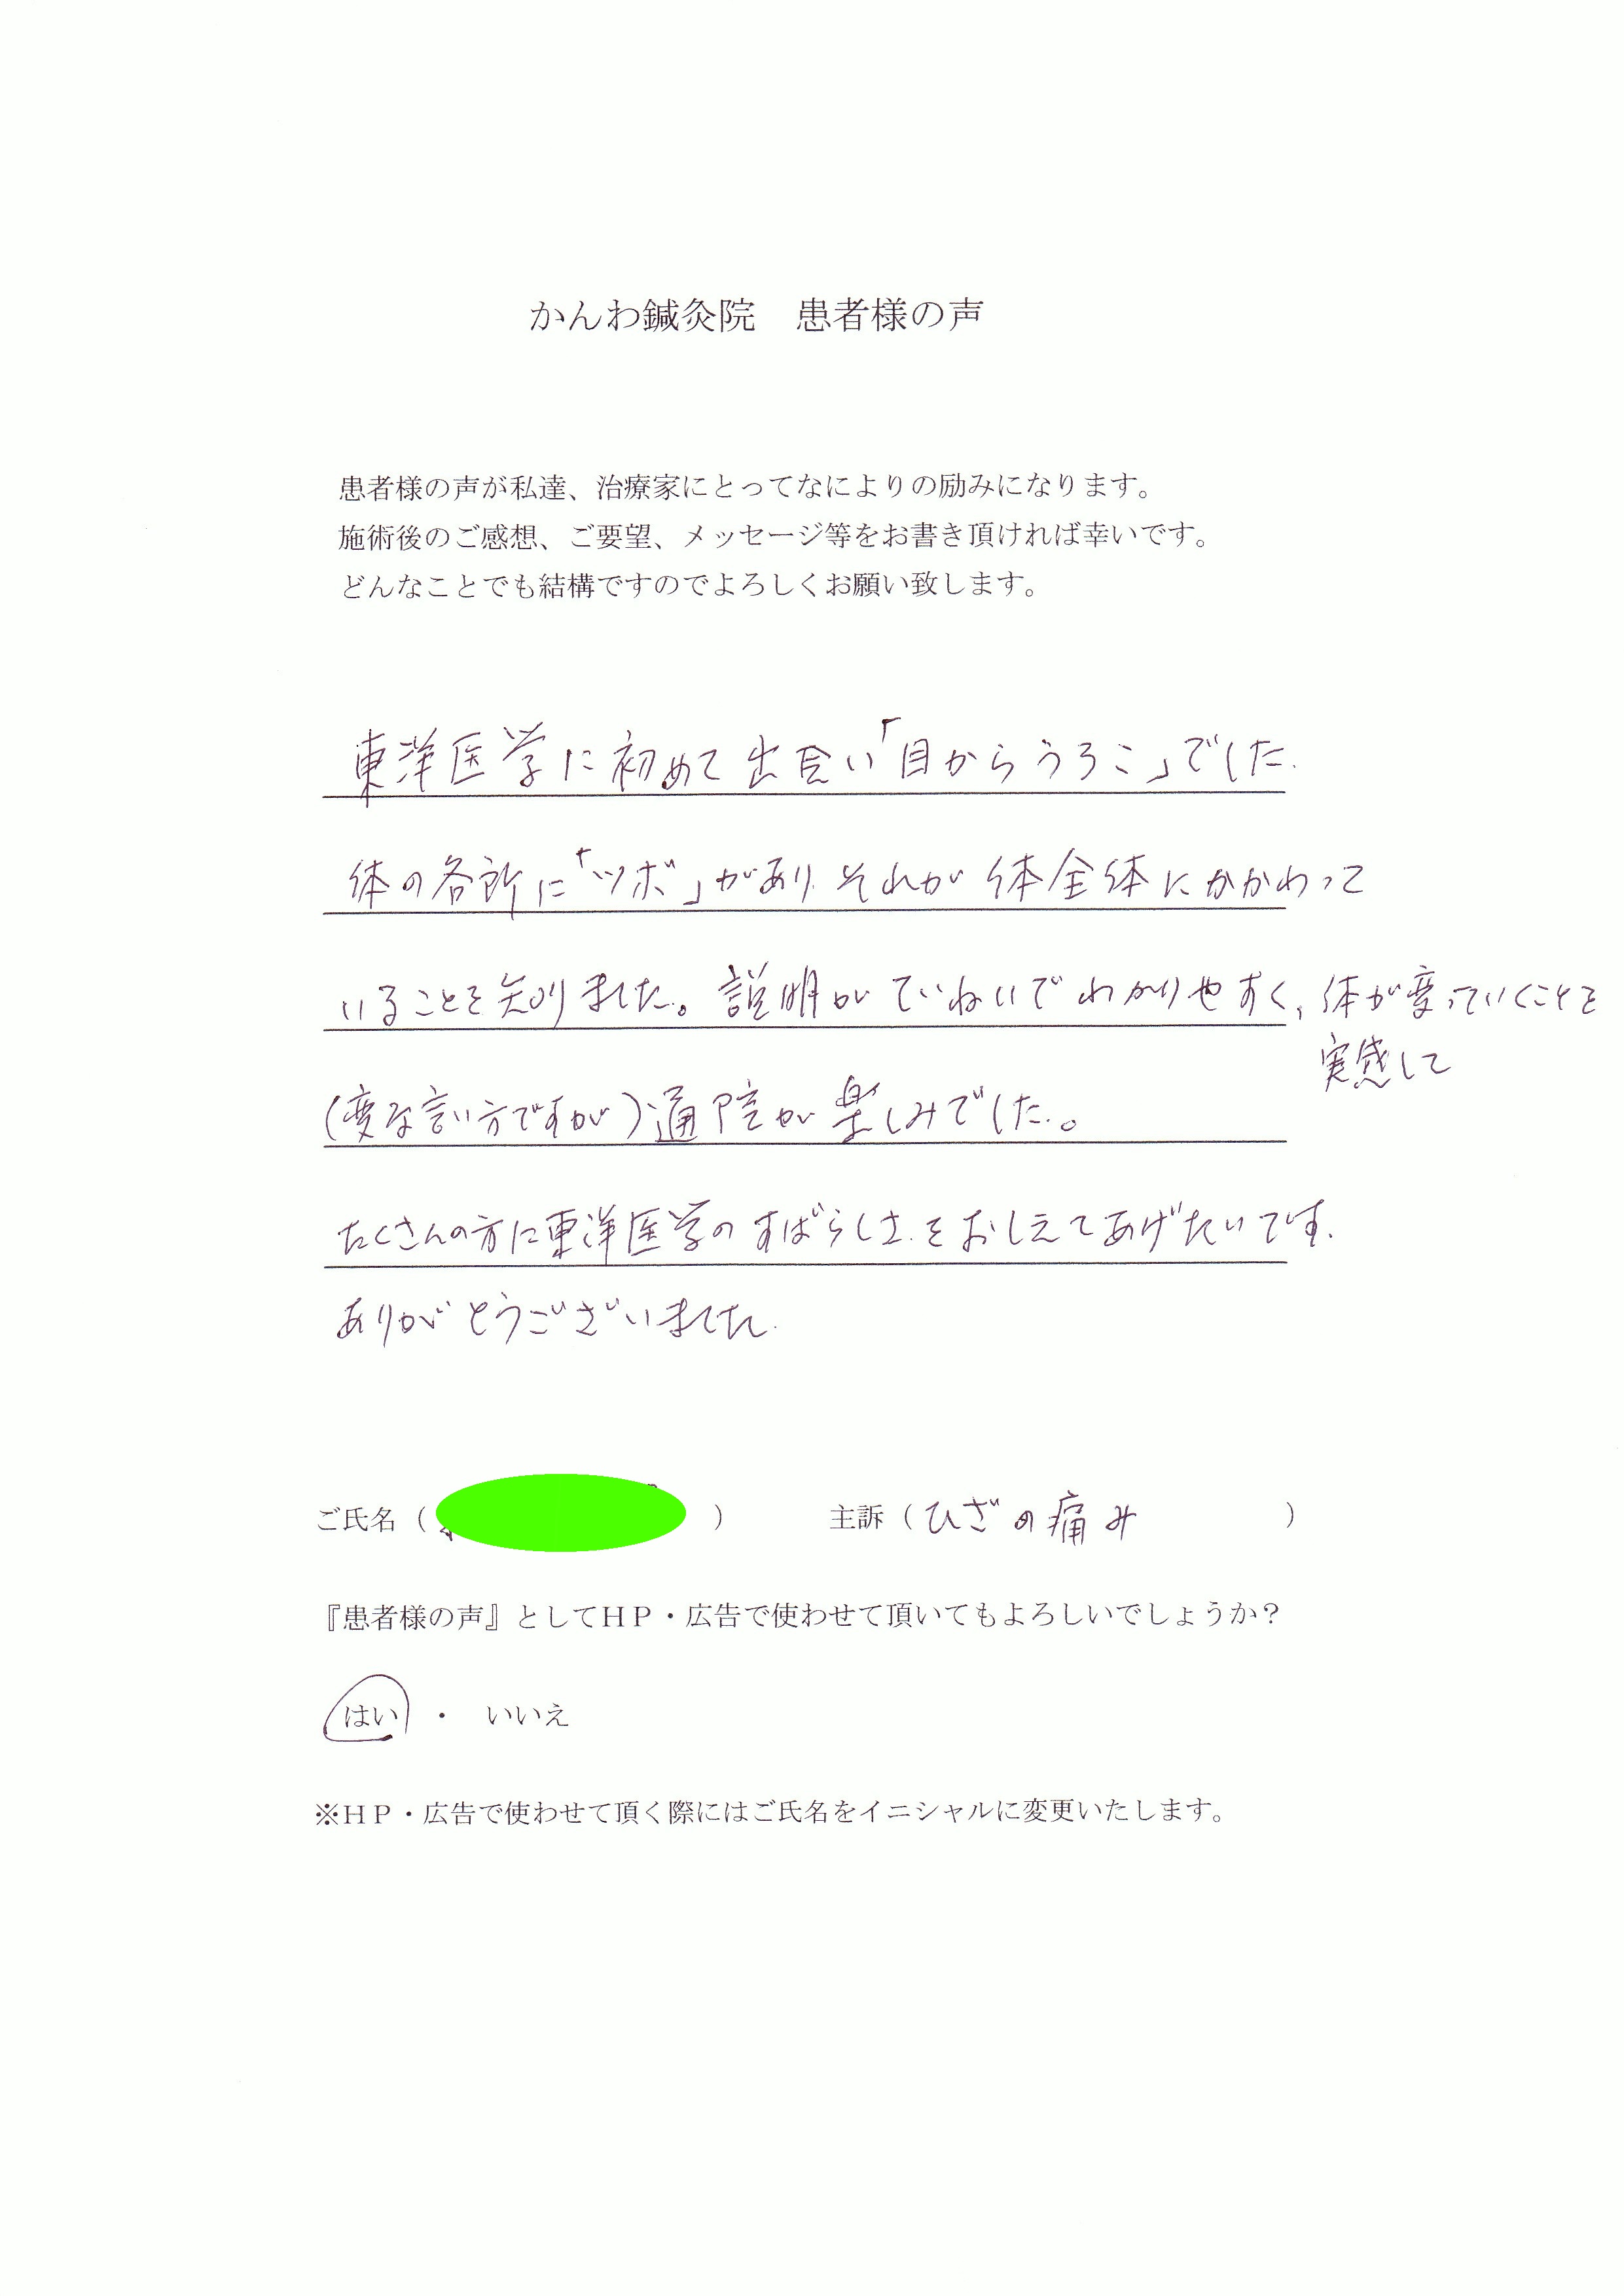 かんわ鍼灸院　患者様の声
患者様の声が私達、治療家にとってなによりの励みになります。
施術後のご感想、ご要望、メッセージ等をお書き頂ければ幸いです。
どんなことでも結構ですのでよろしくお願い致します。
東洋医学に初めて出会い「目からうろこ」でした.
体の各所に「ツボ」があり それが 体全体にかかわって
いることを知りました。説明がていねいでわかりやすく、体が変っていくことを
実感して
(変な言い方ですが)通院が楽しみでした。
たくさんの方に東洋医学のすばらしさをおしえてあげたいです.
ありがとうございました.
ご氏名（　）　主訴（ひざの痛み　）
『患者様の声』としてＨＰ・広告で使わせて頂いてもよろしいでしょうか？
はい　・　いいえ
※ＨＰ・広告で使わせて頂く際にはご氏名をイニシャルに変更いたします。